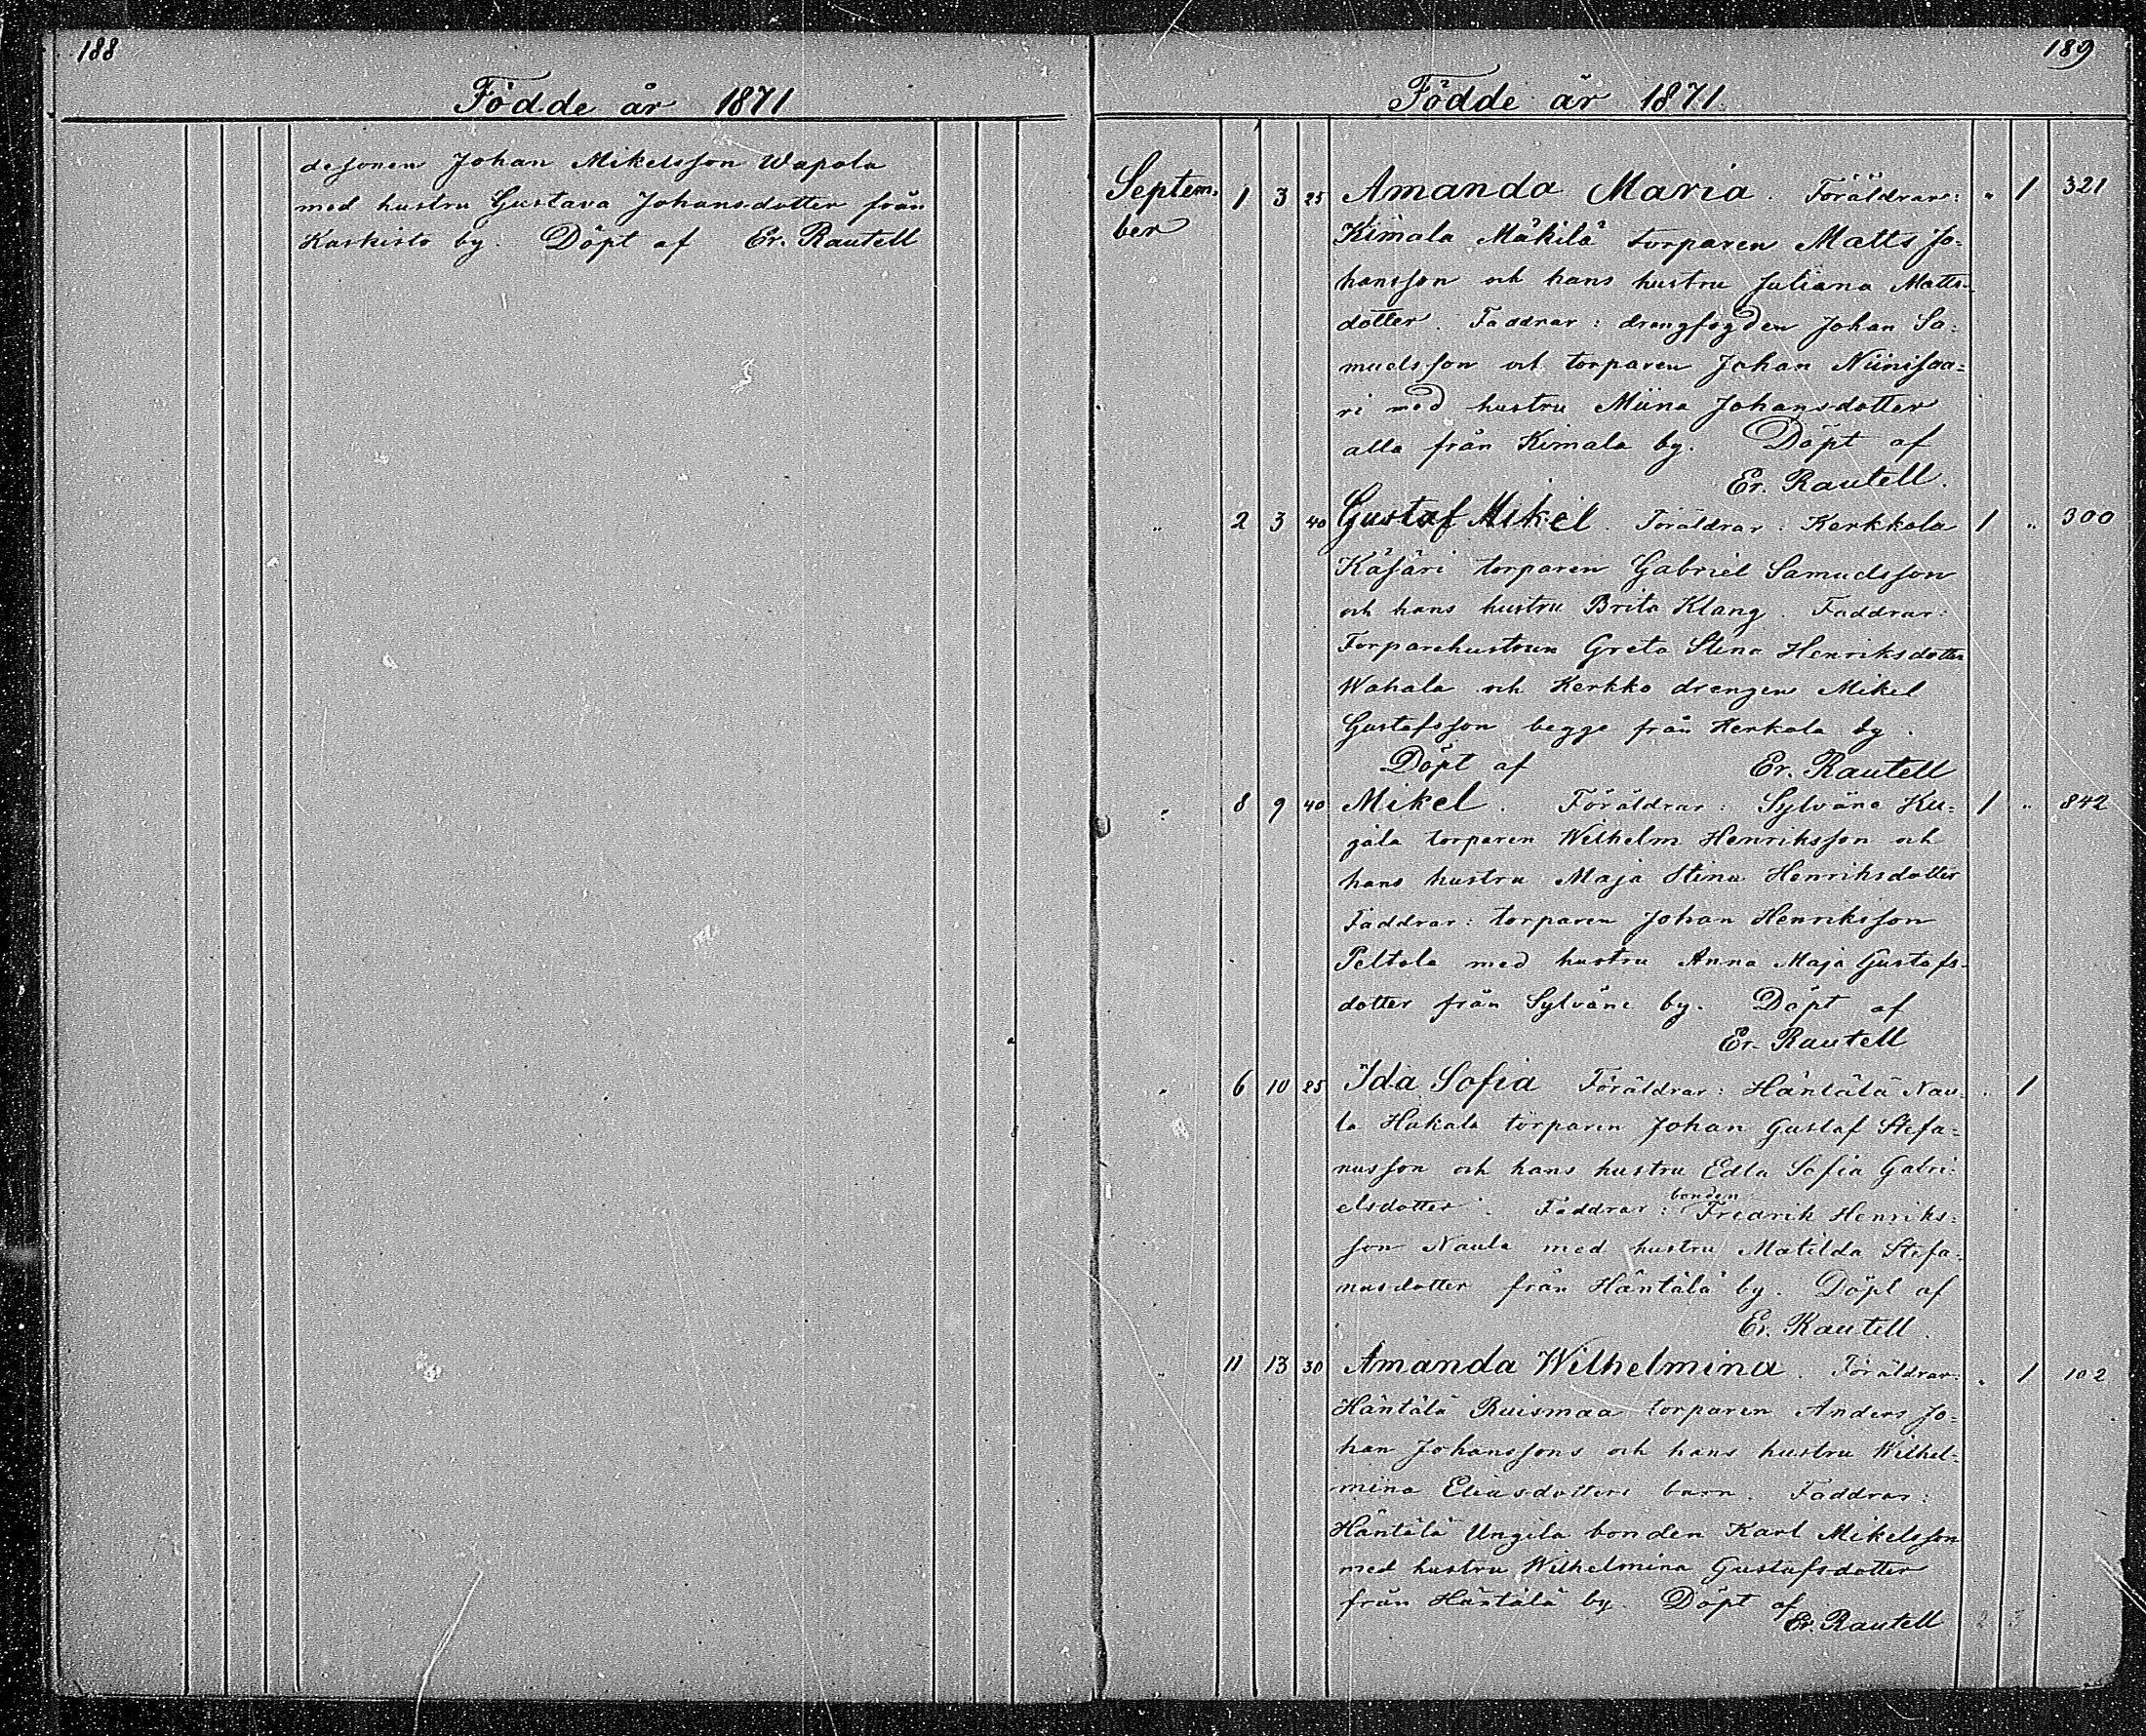 188
Födde år 1871
desonen Johan Mikelsson Wapola
med hustru Gustava Johansdotter från
Kaskisto by. Döpt af Er. Rautell
189
Födde år 1871.
Septem- 1 3 25 Amanda Maria. Föräldrar: " 1 321
ber Kimala Mäkilä torparen Matts Jo-
hansson och hans hustru Juliana Matts-
dotter. Faddrar: drengfogden Johan Sa-
muelsson och torparen Johan Niinisaa-
ri med hustru Miina Johansdotter
alla från Kimala by. Döpt af
Er. Rautell.
" 2 3 40 Gustaf Mikel. Föräldrar: Kerkkola 1 " 300
Käfäri torparen Gabriel Samuelsson
och hans hustru Brita Klang. Faddrar:
Torparehustrun Greta Stina Henriksdotter
Wahala och Kerkko drengen Mikel
Gustafsson begge från Kerkola by.
Döpt af Er. Rautell
" 8 9 40 Mikel. Föräldrar: Sylväne Ku- 1 " 842
gäla torparen Wilhelm Henriksson och
hans hustru Maja Stina Henriksdotter
Faddrar: torparen Johan Henriksson
Peltola med hustru Anna Maja Gustafs-
dotter från Sylväne by. Döpt af
Er. Rautell
" 6 10 25 Ida Sofia Föräldrar: Häntälä Nau- " 1
la Hakala torparen Johan Gustaf Stefa-
nusson och hans hustru Edla Sofia Gabri-
elsdotter. Faddrar: bonden Fredrik Henriks-
son Naula med hustru Matilda Stefa-
nusdotter från Häntälä by. Döpt af
Er. Rautell.
" 11 13 30 Amanda Wilhelmina. Föräldrar: " 1 102
Häntälä Ruismaa torparen Anders Jo-
han Johanssons och hans hustru Wilhel-
mina Eliasdotters barn. Faddrar:
Häntälä Ungila bonden Karl Mikelsson
med hustru Wilhelmina Gustafsdotter
från Häntälä by. Döpt af
Er. Rautell